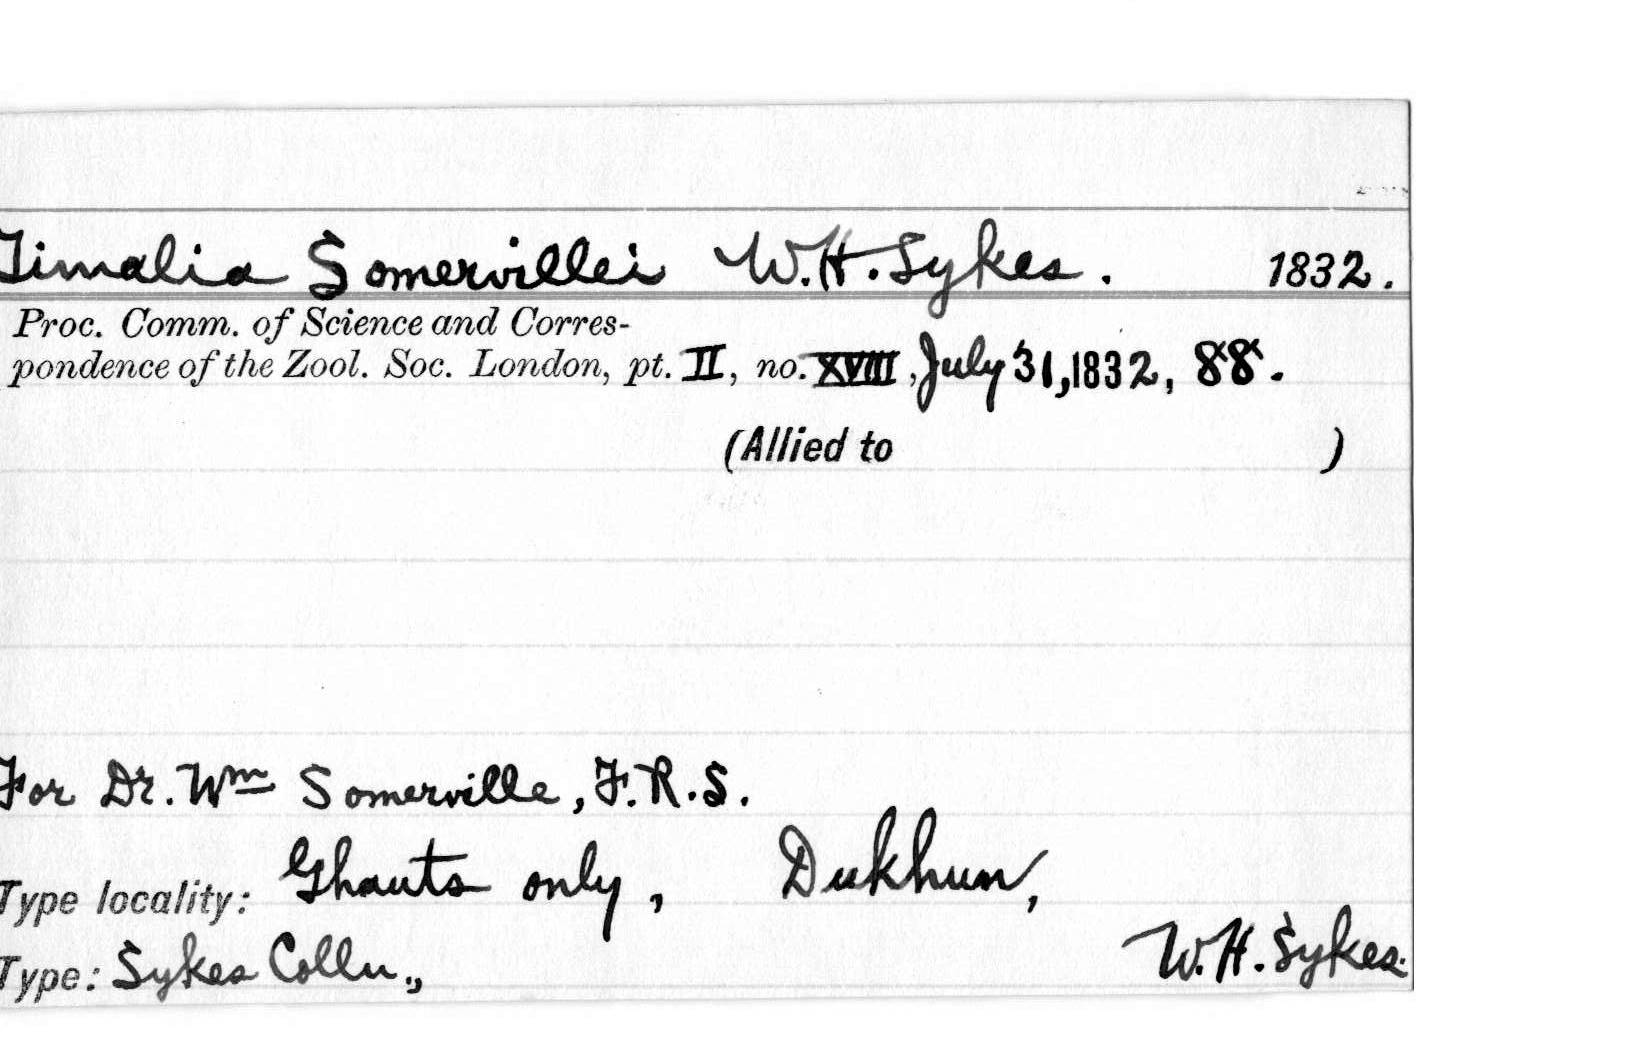 Timalia Somervillei W.H. Sykes. 1832.
Proc. Comm. of Science and Corres-
pondence of the Zool. Soc. London, pt. II, no. XVIII, July 31, 1832, 88.
(Allied to )
For Dr. Wm Somerville, F.R.S.
Type locality: Ghauts only, Dukhun,
Type: Sykes Colln., W.H. Sykes.